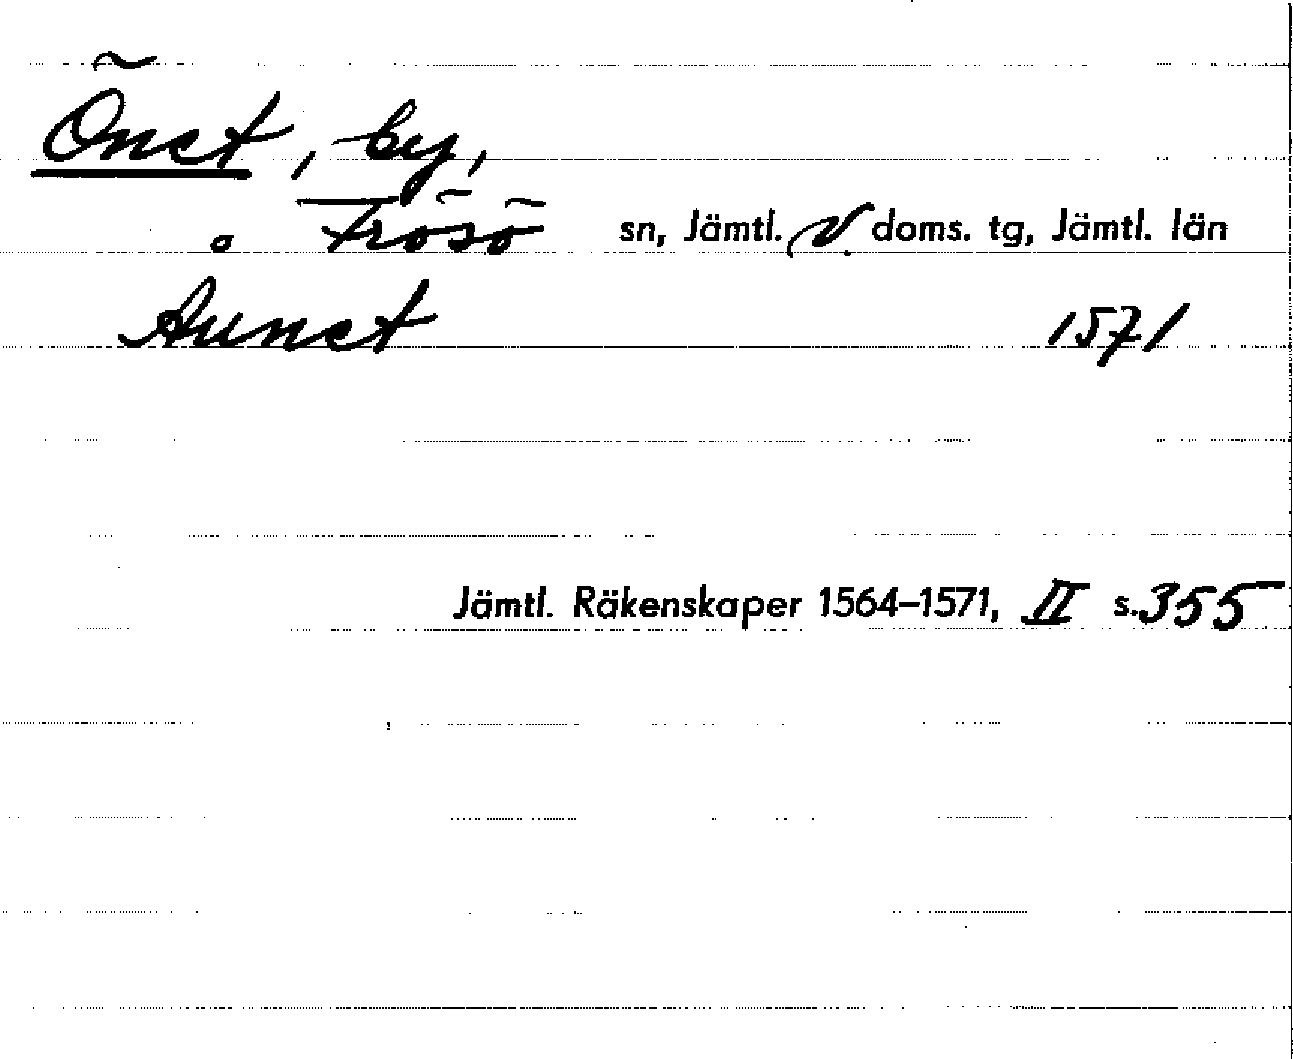 Önst, by,
o Frösö sn, Jämtl. V. doms. tg, Jämtl. län
Aunst 1571
Jämtl. Räkenskaper 1564–1571, II s. 355